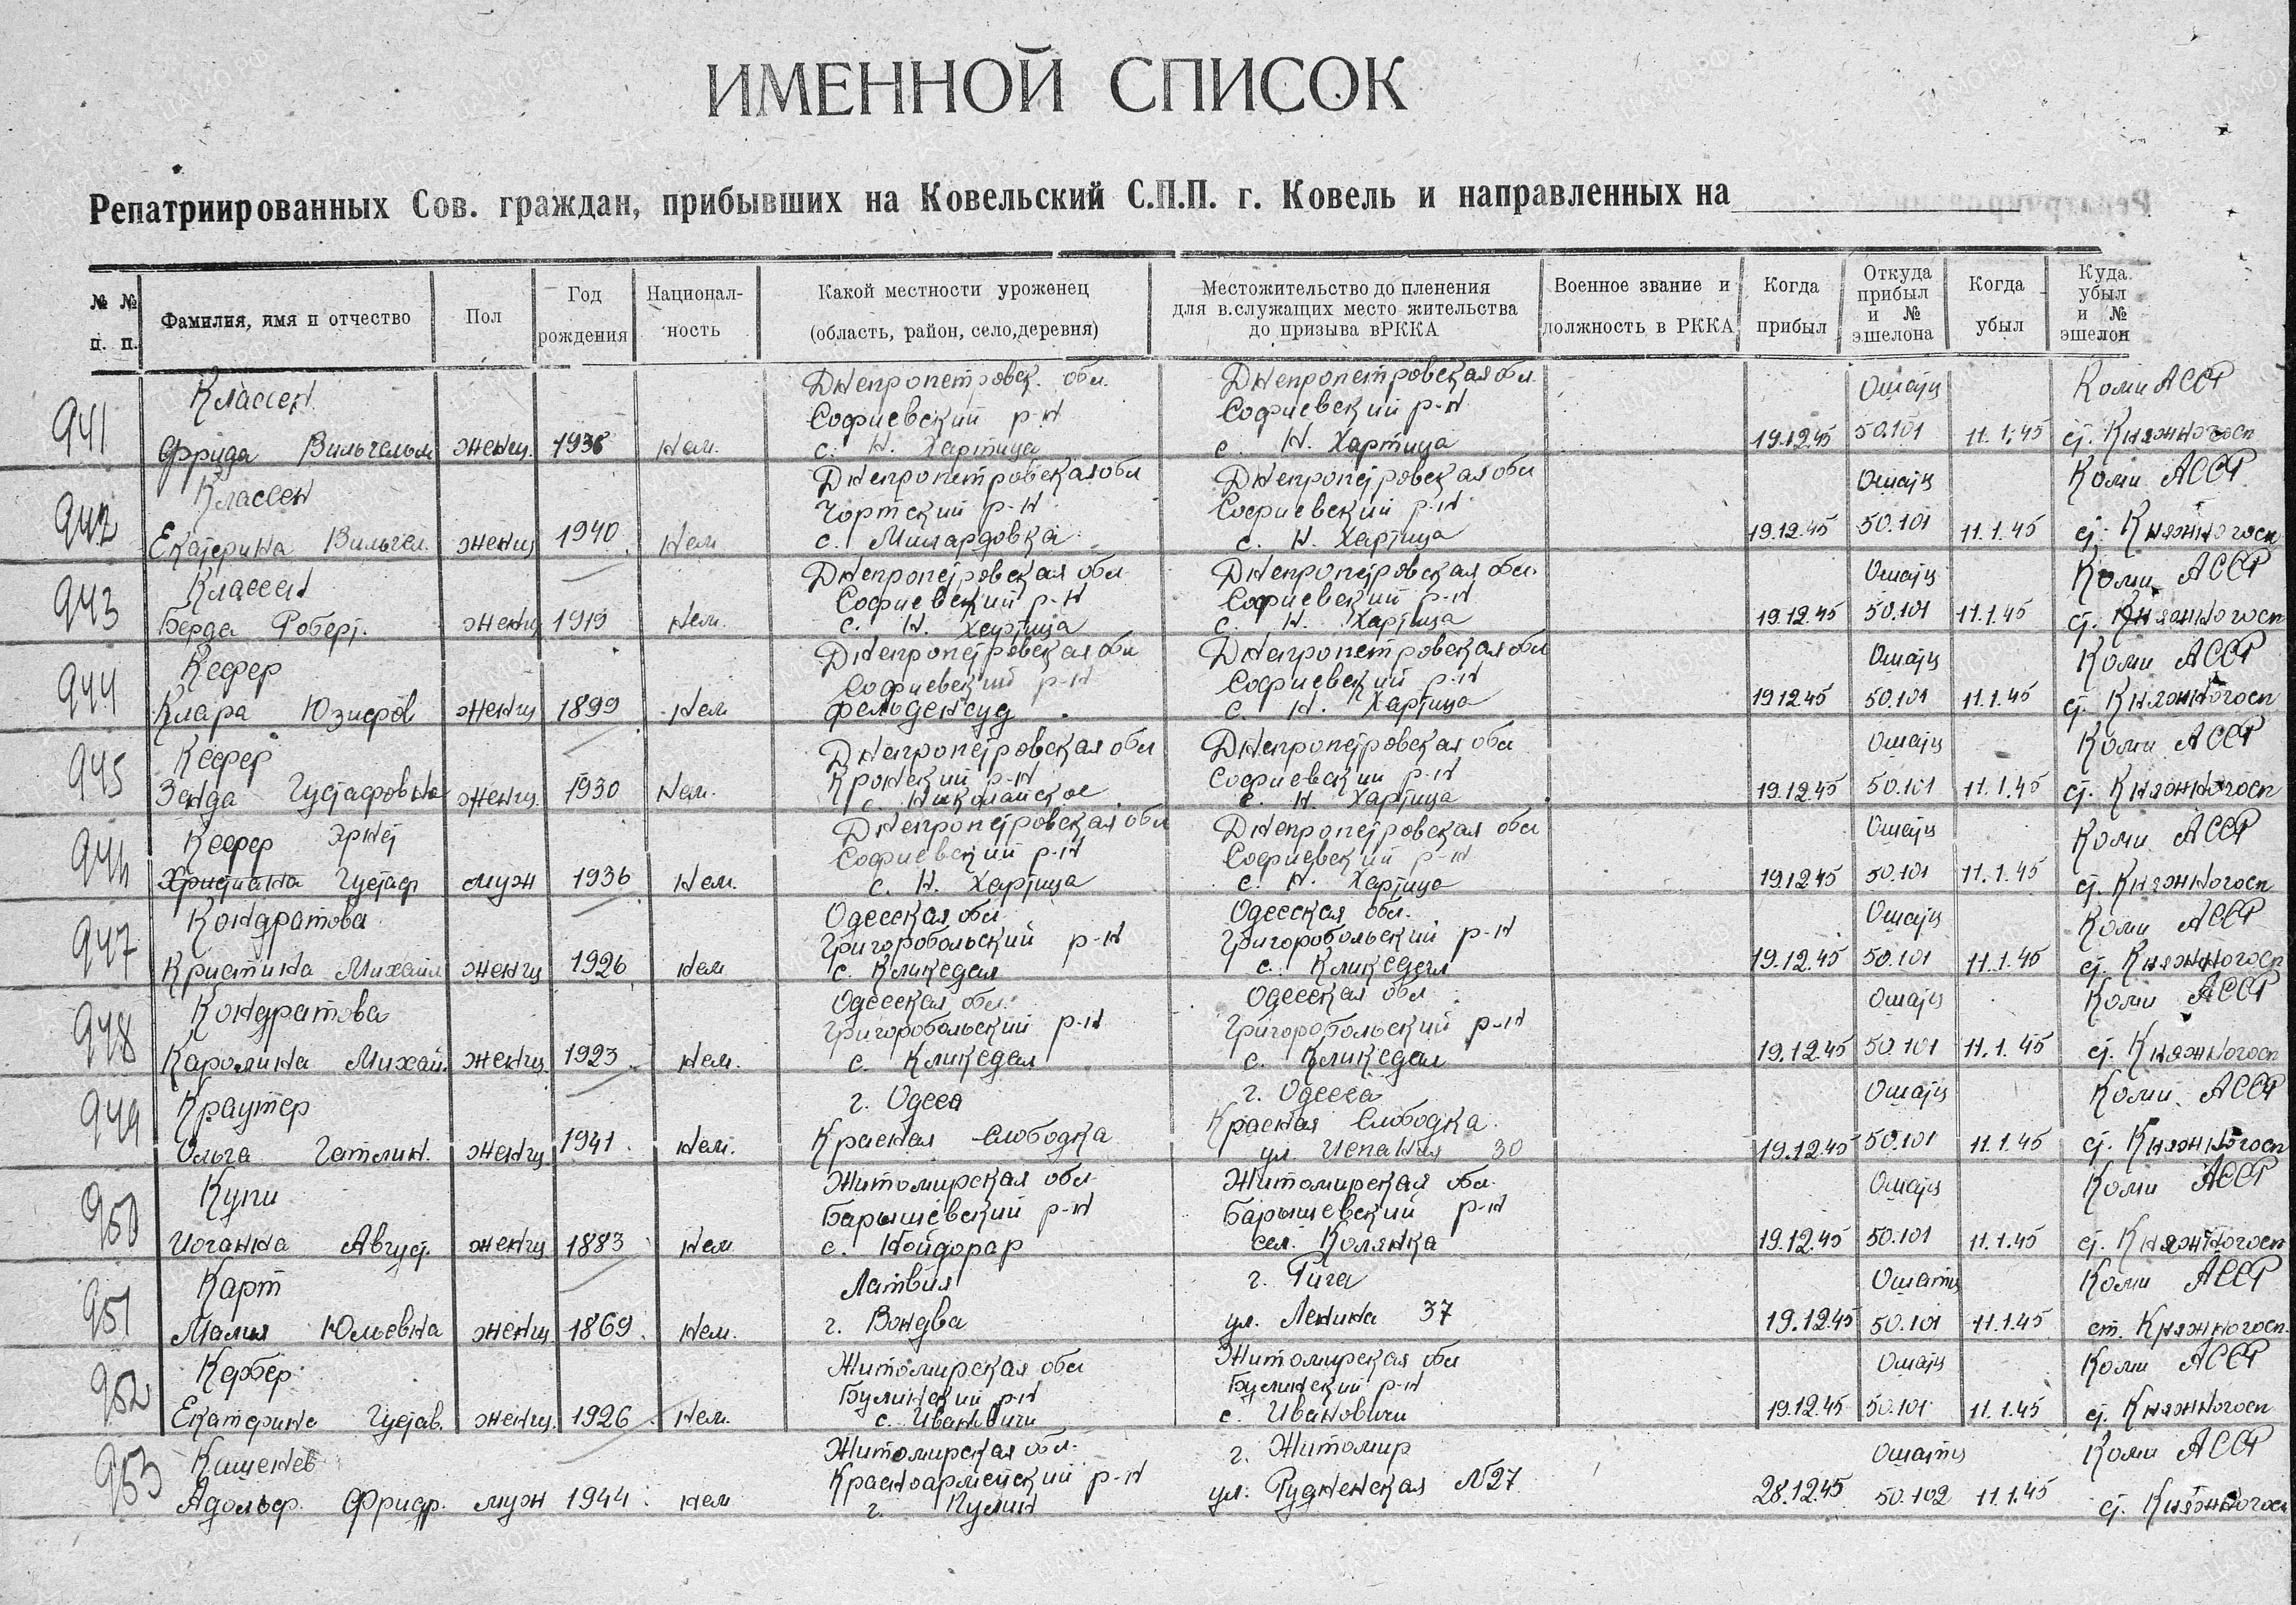 ИМЕННОЙ СПИСОК
Репатриированных Сов. граждан, прибывших на Ковельский С.П.П. г. Ковель и направленных на
№ № п. п. Фамилия, имя и отчество Пол Год рождения Националь-ность Какой местности уроженец (область, район, село, деревня) Местожительство до пленения для в.служащих место жительства до призыва вРККА Военное звание и должность в РККА Когда прибыл Откуда прибыл и № эшелона Когда убыл Куда убыл и № эшелон
Классен Днепропетровск. обл. Днепропетровская обл. Ошатц Коми АССР
941 Софиевский р-н Софиевский р-н
Фрида Вильгельм женщ. 1936 нем. с. Н. Хартица с. Н. Хартица 19.12.45 50.101 11.1.45 ст. Княжногосп
Классен Днепропетровская обл Днепропетровская обл Ошатц Коми АССР
942 р-н Софиевский р-н
Екатерина Вильгел. женщ 1940 нем с. с. Н. Хартица 19.12.45 50.101 11.1.45 ст. Княжногосп
Классен Днепропетровская обл Днепропетровская обл. Ошатц Коми АССР
943 Софиевский р-н Софиевский р-н
Берда Роберт. женщ 1919 нем. с. Н. Хартица с. Н. Хартица 19.12.45 50.101 11.1.45 ст. Княжногосп
Кефер Днепропетровская обл Днепропетровская обл Ошатц Коми АССР
944 Софиевский р-н Софиевский р-н
Клара женщ 1899 нем Фельденсуд с. Н. Хартица 19.12.45 50.101 11.1.45 ст. Княжногосп
Кефер Днепропетровская обл Днепропетровская обл Ошатц Коми АССР
945 Кронский р-н Софиевский р-н
Зенда Густафовна женщ. 1930 нем. с. Николайское с. Н. Хартица 19.12.45 50.101 11.1.45 ст. Княжногосп
Кефер Эрнст Днепропетровская обл Днепропетровская обл Ошатц Коми АССР
946 Софиевский р-н Софиевский р-н
Христиана Густаф муж 1936 нем. с. Н. Хартица с. Н. Хартица 19.12.45 50.101 11.1.45 ст. Княжногосп
Кондратова Одесская обл Одесская обл. Ошатц Коми АССР
947 Григоробольский р-н Григоробольский р-н
Кристина Михайл женщ 1926 нем с. Кликедал с. Кликедал 19.12.45 50.101 11.1.45 ст. Княжногосп
Кондратова Одесская обл. Одесская обл Ошатц Коми АССР
948 Григоробольский р-н Григоробольский р-н
Каролина Михай. женщ. 1923 нем. с. Кликедал с. Кликедал 19.12.45 50.101 11.1.45 ст. Княжногосп
Краутер г. Одеса г. Одесса Ошатц Коми АССР
949 Красная Слободка Красная Слободка
Ольга Гетлин. женщ 1941 нем. ул Испания 30 19.12.45 50.101 11.1.45 ст. Княжногосп
Купи Житомирская обл. Житомирская обл. Ошатц Коми АССР
950 Барышевский р-н Барышевский р-н
Иоганна Август. женщ 1883 нем с. Нойдорар сел. Колянка 19.12.45 50.101 11.1.45 ст. Княжногосп
Карт Латвия г. Рига Ошатц Коми АССР
951 Малия Юльевна женщ 1869. нем. г. Вондва ул. Ленина 37 19.12.45 50.101 11.1.45 ст. Княжногосп.
Кербер Житомирская обл Житомирская обл Ошатц Коми АССР
952 Булинский р-н Булинский р-н
Екатерина Густав. женщ. 1926 нем. с. Ивановичи с. Ивановичи 19.12.45 50.101 11.1.45 ст. Княжногосп
Кишенев Житомирская обл. г. Житомир Ошатц Коми АССР
953 Красноармейский р-н ул. Рудненская №27
Адольф. Фридр. муж 1944. нем г. Пулин 28.12.45 50.102 11.1.45 ст. Княжногосп